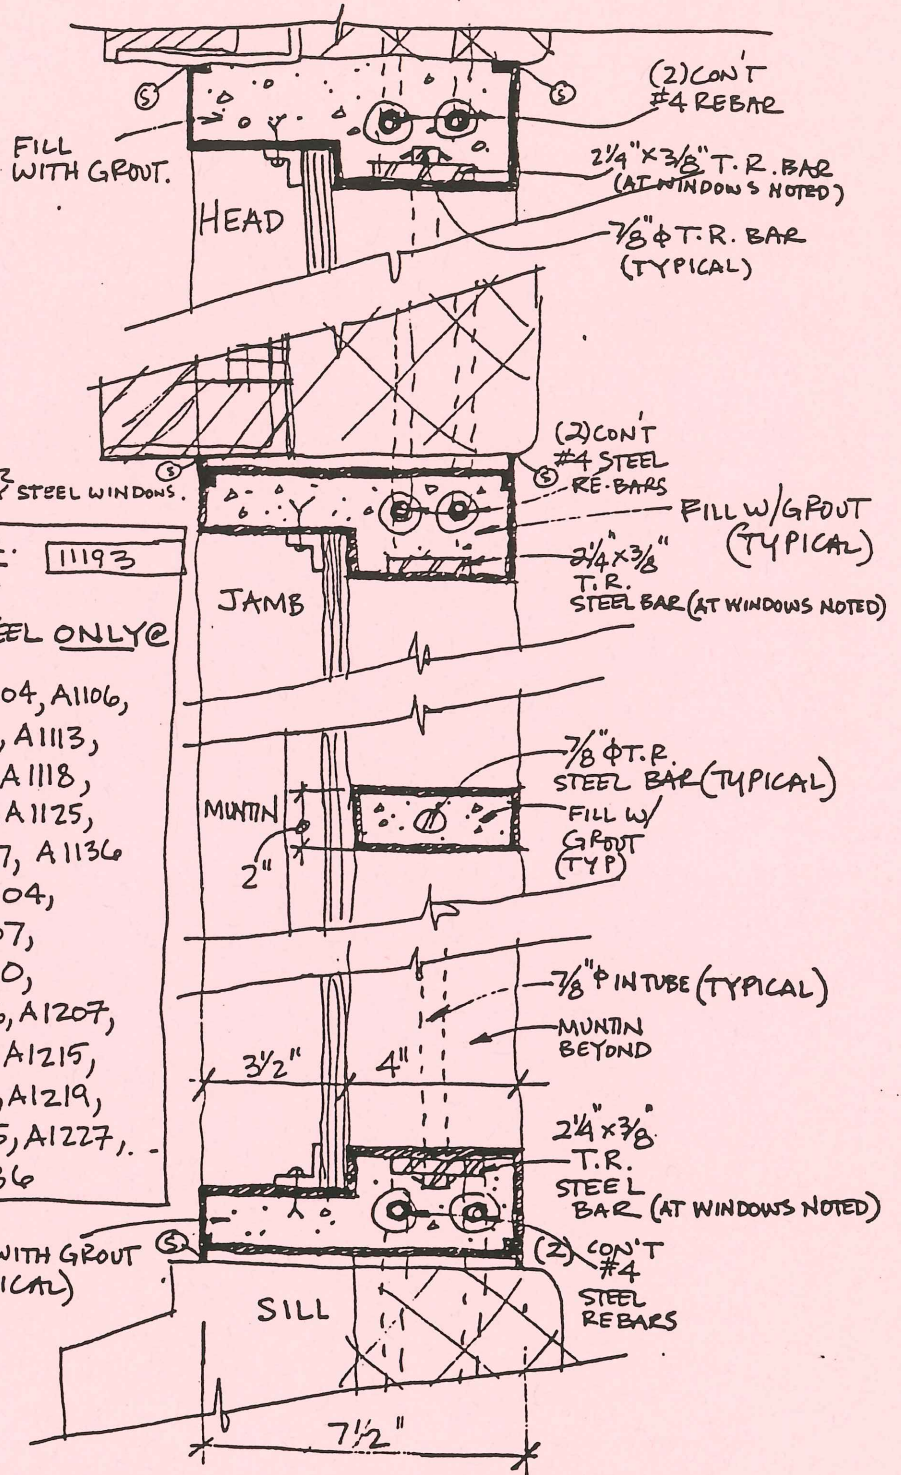 (2) CON'T
#4 REBAR
FILL
WITH GROUT.
2¼" x 3/8" T.R. BAR
(AT WINDOWS NOTED)
HEAD
7/8" ϕ T.R. BAR
(TYPICAL)
S
S
(2) CON'T
#4 STEEL
RE-BARS
S
S
STEEL WINDOWS.
FILL W/GROUT
(TYPICAL)
11193
2¼" x 3/8"
T.R.
STEEL BAR (AT WINDOWS NOTED)
JAMB
ONLY@
04, A1106,
, A1113,
A1118,
A1125,
7, A1136
04,
07,
0,
, A1207,
A1215,
, A1219,
5, A1227,
36
7/8" ϕ T.R.
STEEL BAR (TYPICAL)
MUNTIN
FILL W/
GROUT
(TYP)
2"
7/8" ϕ IN TUBE (TYPICAL)
MUNTIN
BEYOND
3½" 4"
2¼" x 3/8"
T.R.
STEEL
BAR (AT WINDOWS NOTED)
WITH GROUT
S
(2) CON'T
#4
STEEL
REBARS
SILL
7½"